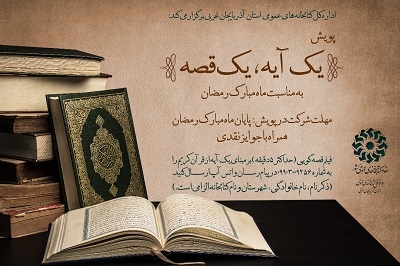 اداره کل کتابخانه‌های عمومی استان آذربایجان غربی برگزار می‌کند:
پویش
یک آیه، یک قصه
به مناسبت ماه مبارک رمضان
مهلت شرکت در پویش: پایان ماه مبارک رمضان
همراه با جوایز نقدی
فیلم قصه‌گویی (حداکثر ۵ دقیقه) بر مبنای یک آیه از قرآن کریم را
به شماره ۰۹۹۰۳۰۹۲۵۶ در پیام رسان واتس آپ ارسال کنید
(ذکر نام، نام خانوادگی، شهرستان و نام کتابخانه الزامی است)